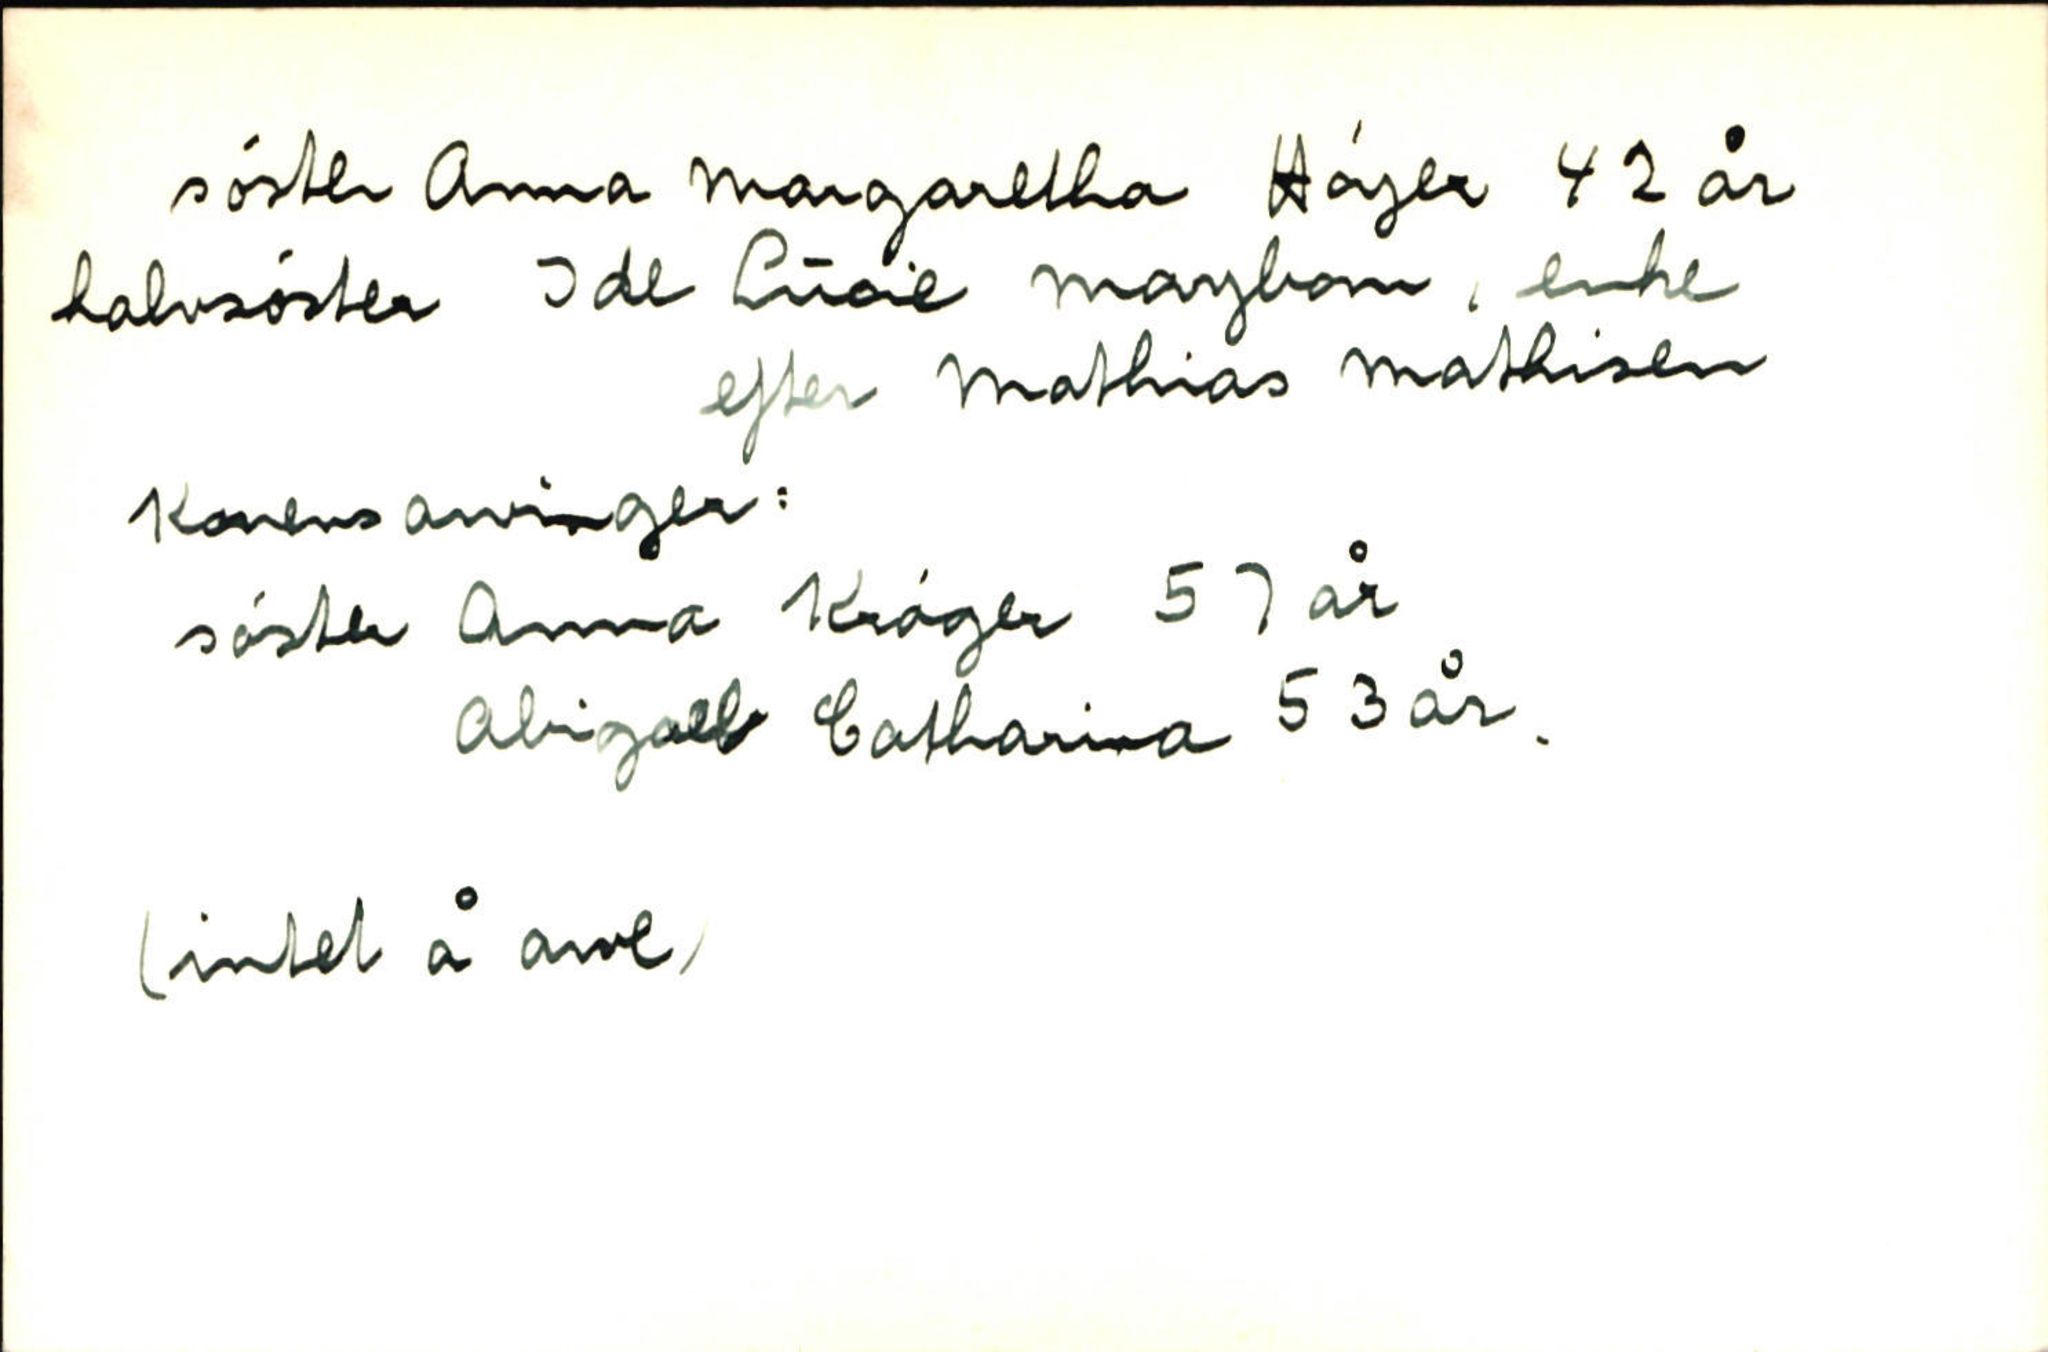 søster Anna Margaretha Høyer 42 år
halvsøster Ide Lucie Maybom, enke
efter Mathias Mathisen
Konens arvinger:
søster Anna Krøger 57 år
Abigael Catharina 53 år.
(intet å arve)